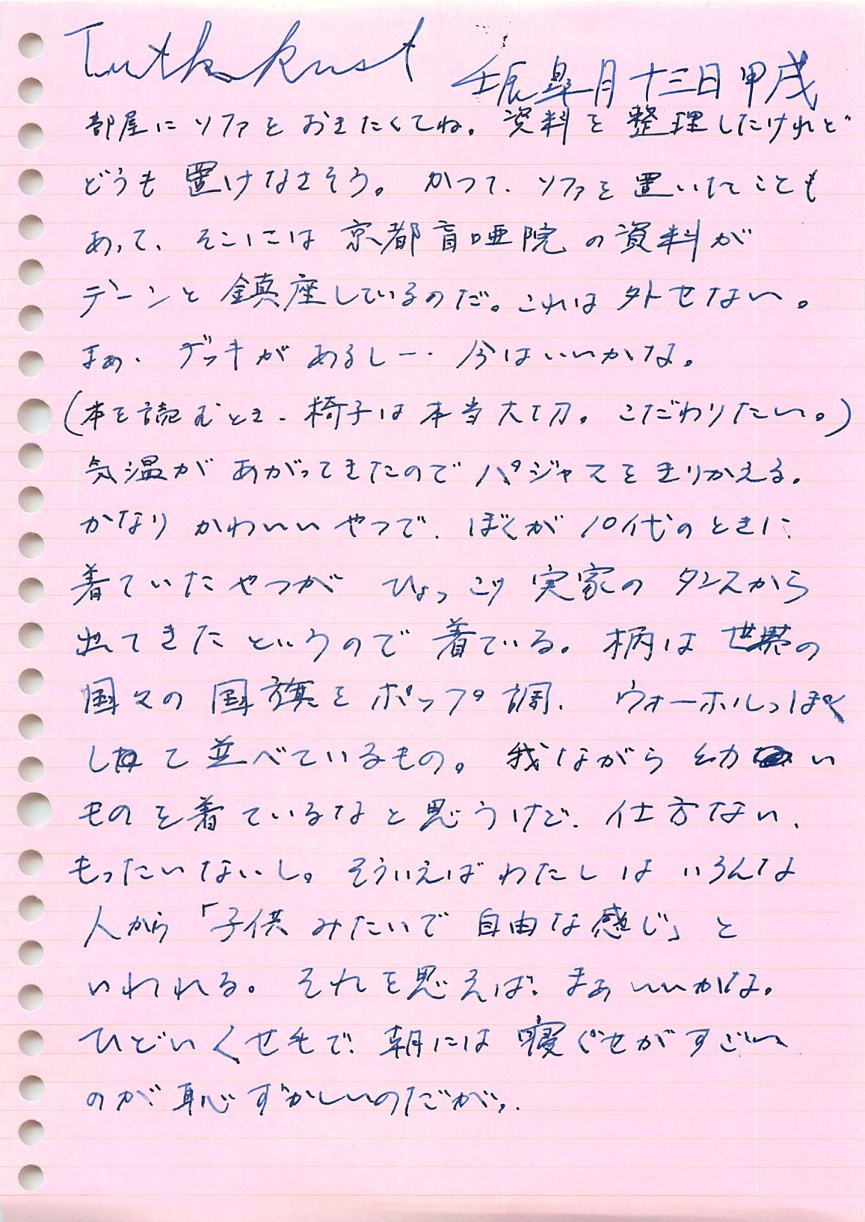 壬辰皐月十三日甲戌
部屋にソファとおきたくてね。資料を整理したけれど
どうも置けなさそう。かつて、ソファを置いたことも
あって、そこには京都盲唖院の資料が
デーンと鎮座しているのだ。これは外せない。
まぁ、デッキがあるしー・今はいいかな。
(本を読むとき、椅子は本当大切。こだわりたい。)
気温があがってきたのでパジャマをきりかえる。
かなりかわいいやつで、ぼくが10代のときに
着ていたやつがひょっこり実家のタンスから
出てきたというので着ている。柄は世界の
国々の国旗をポップ調、ウォーホルっぽく
して並べているもの。我ながら幼い
ものを着ているなと思うけど、仕方ない、
もったいないし。そういえばわたしはいろんな
人から「子供みたいで自由な感じ」と
いわれる。それを思えば、まぁいいかな。
ひどいくせ毛で、朝には寝ぐせがすごい
のが恥ずかしいのだが、.